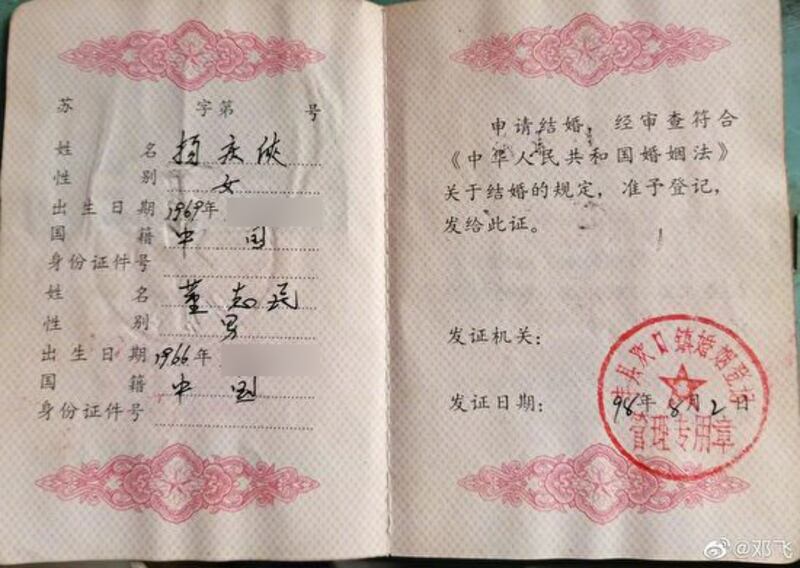 苏 字第 号
姓名 杨庆侠
性别 女
出生日期 1969年
国籍 中国
身份证件号
姓名 董志民
性别 男
出生日期 1966年
国籍 中国
身份证件号
申请结婚，经审查符合
《中华人民共和国婚姻法》
关于结婚的规定，准予登记，
发给此证。
发证机关：
丰县欢口镇婚姻登记
发证日期： 98年8月2日
管理专用章
@邓飞